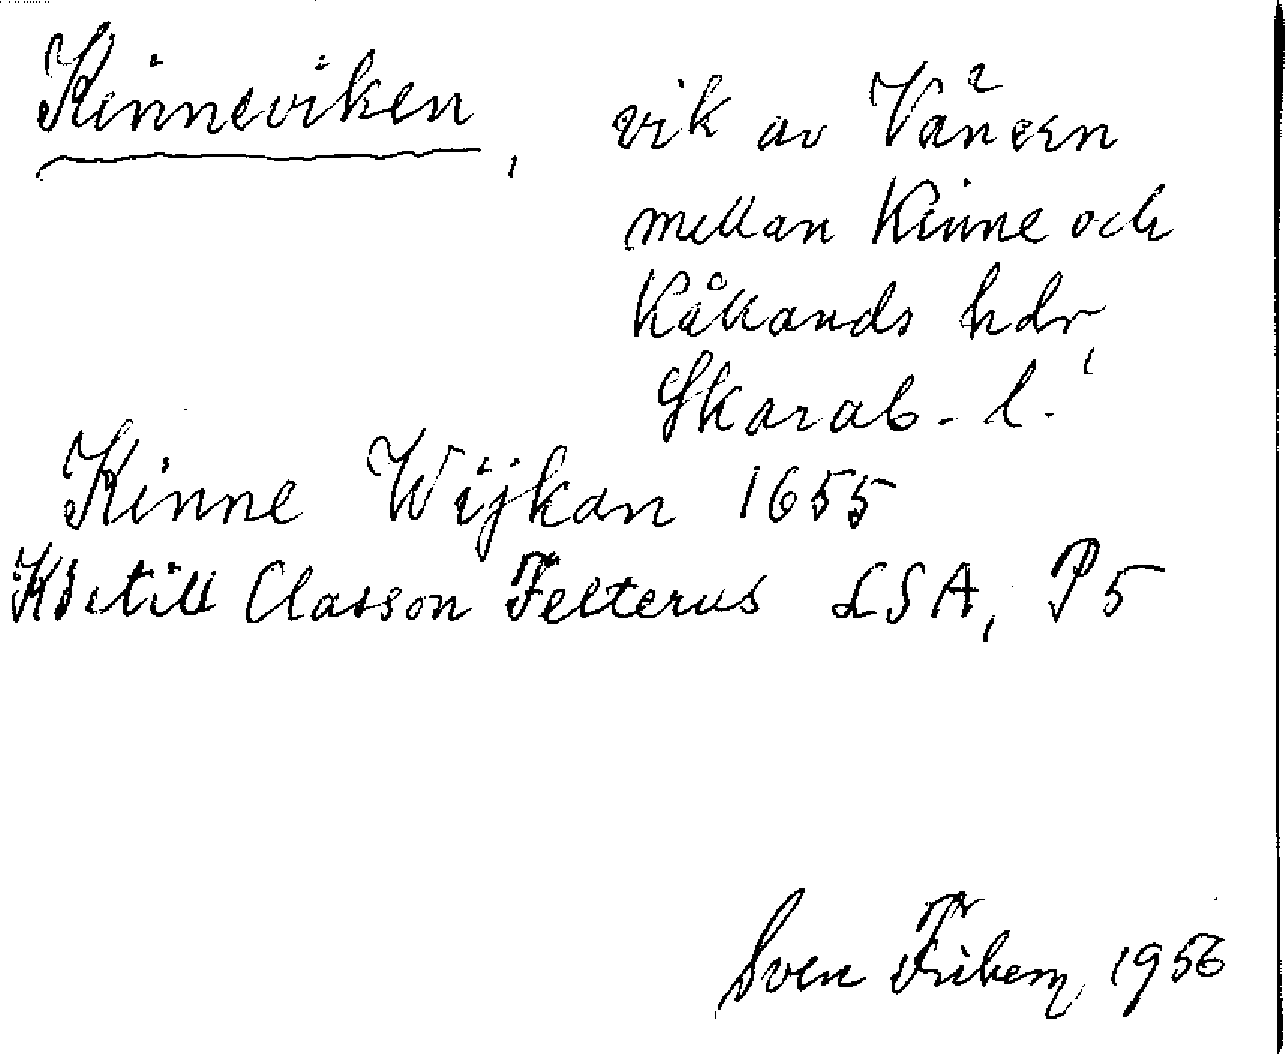 Kinneviken, vik av Vänern
mellan Kinne och
Kållands hdr,
Skarab. l.
Kinne Wijkan 1655
Kietill Classon Felterus LSA, P5
Sven Friberg 1956